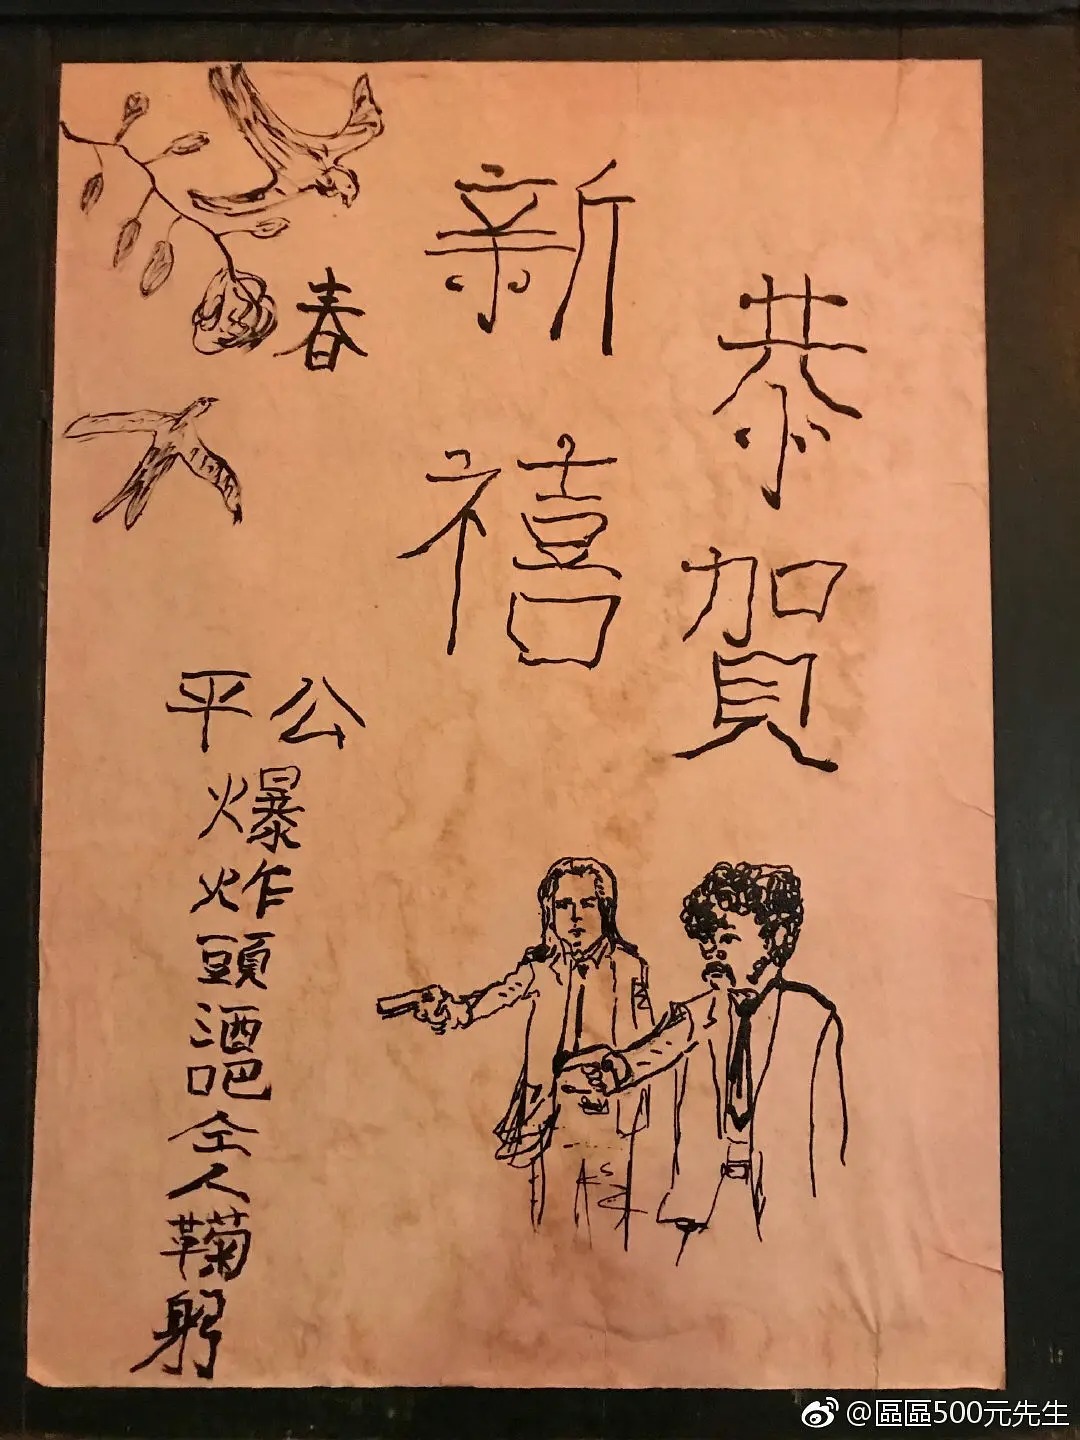 恭賀
新禧
春
公平
爆炸頭酒吧仝人鞠躬
@區區500元先生